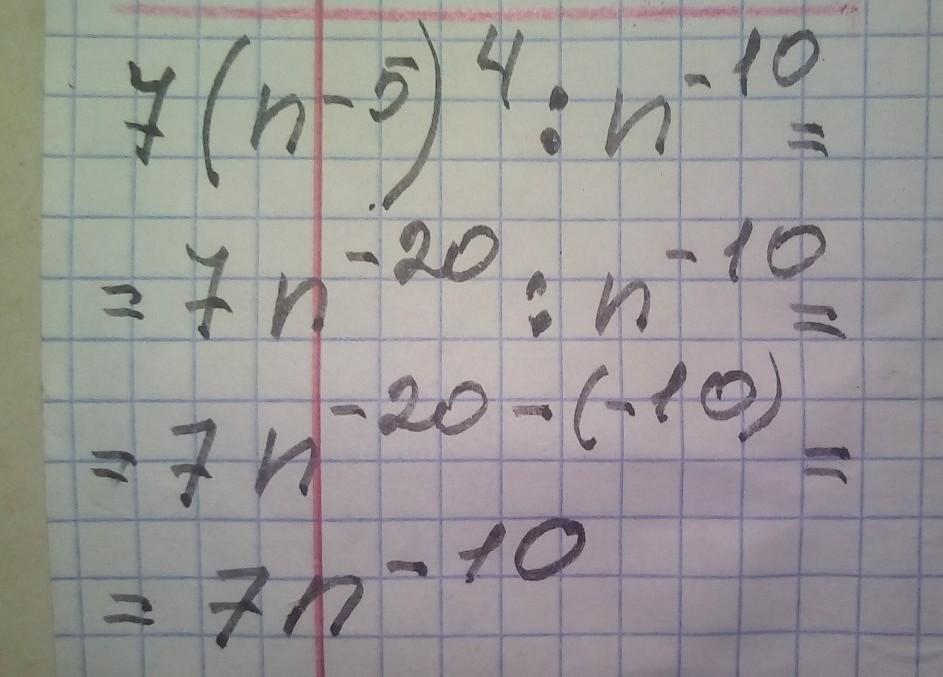 7(n⁻⁵)⁴ : n⁻¹⁰ =
= 7n⁻²⁰ : n⁻¹⁰ =
= 7n⁻²⁰⁻⁽⁻¹⁰⁾ =
= 7n⁻¹⁰